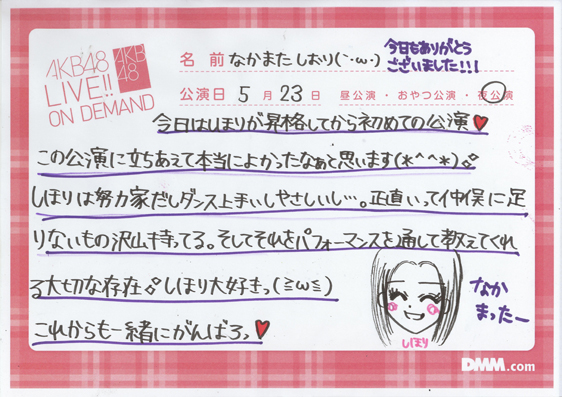 AKB48
LIVE!!
ON DEMAND
AKB
48
名 前 なかまた しおり(`･ω･)
今日もありがとう
ございました!!!
公演日 5 月 23 日 昼公演・おやつ公演・夜公演
今日はしほりが昇格してから初めての公演♥
この公演に立ちあえて本当によかったなぁと思います(*^^*)
しほりは努力家だしダンス上手いしやさしいし…。正直いって仲俣に足
りないもの沢山持ってる。そしてそれをパフォーマンスを通して教えてくれ
る大切な存在 しほり大好きっ(≧ω≦)
これからも一緒にがんばろっ♥
しほり
なか
まったー
DMM.com